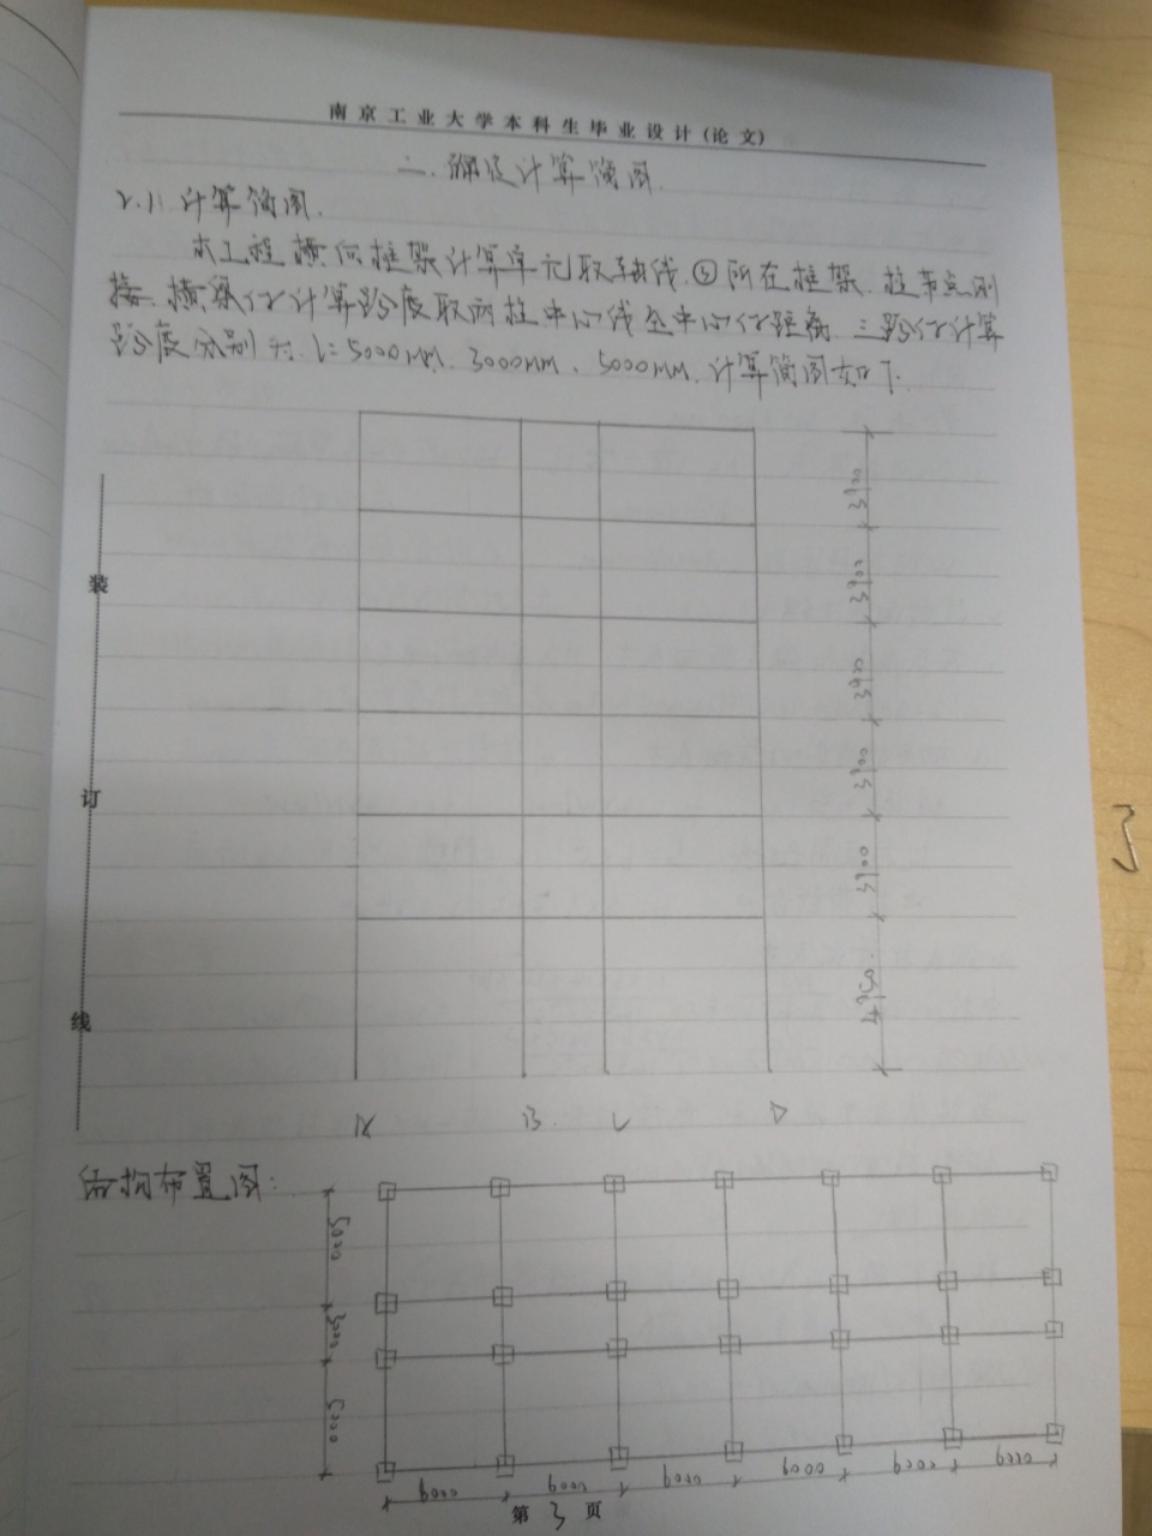 南京工业大学本科生毕业设计(论文)
二. 确定计算简图.
2.1: 计算简图.
本工程横向框架计算单元取轴线⑤所在框架. 柱节点刚
接. 横梁的计算跨度取两柱中心线至中心的距离. 三跨的计算
跨度分别为. l=5000mm. 3000mm、5000mm. 计算简图如下.
3900
3900
3900
3900
3900
装
订
线
A B. C D
结构布置图:
5000
3000
5000
6000 6000 6000 6000 6000 6000
第 3 页
3